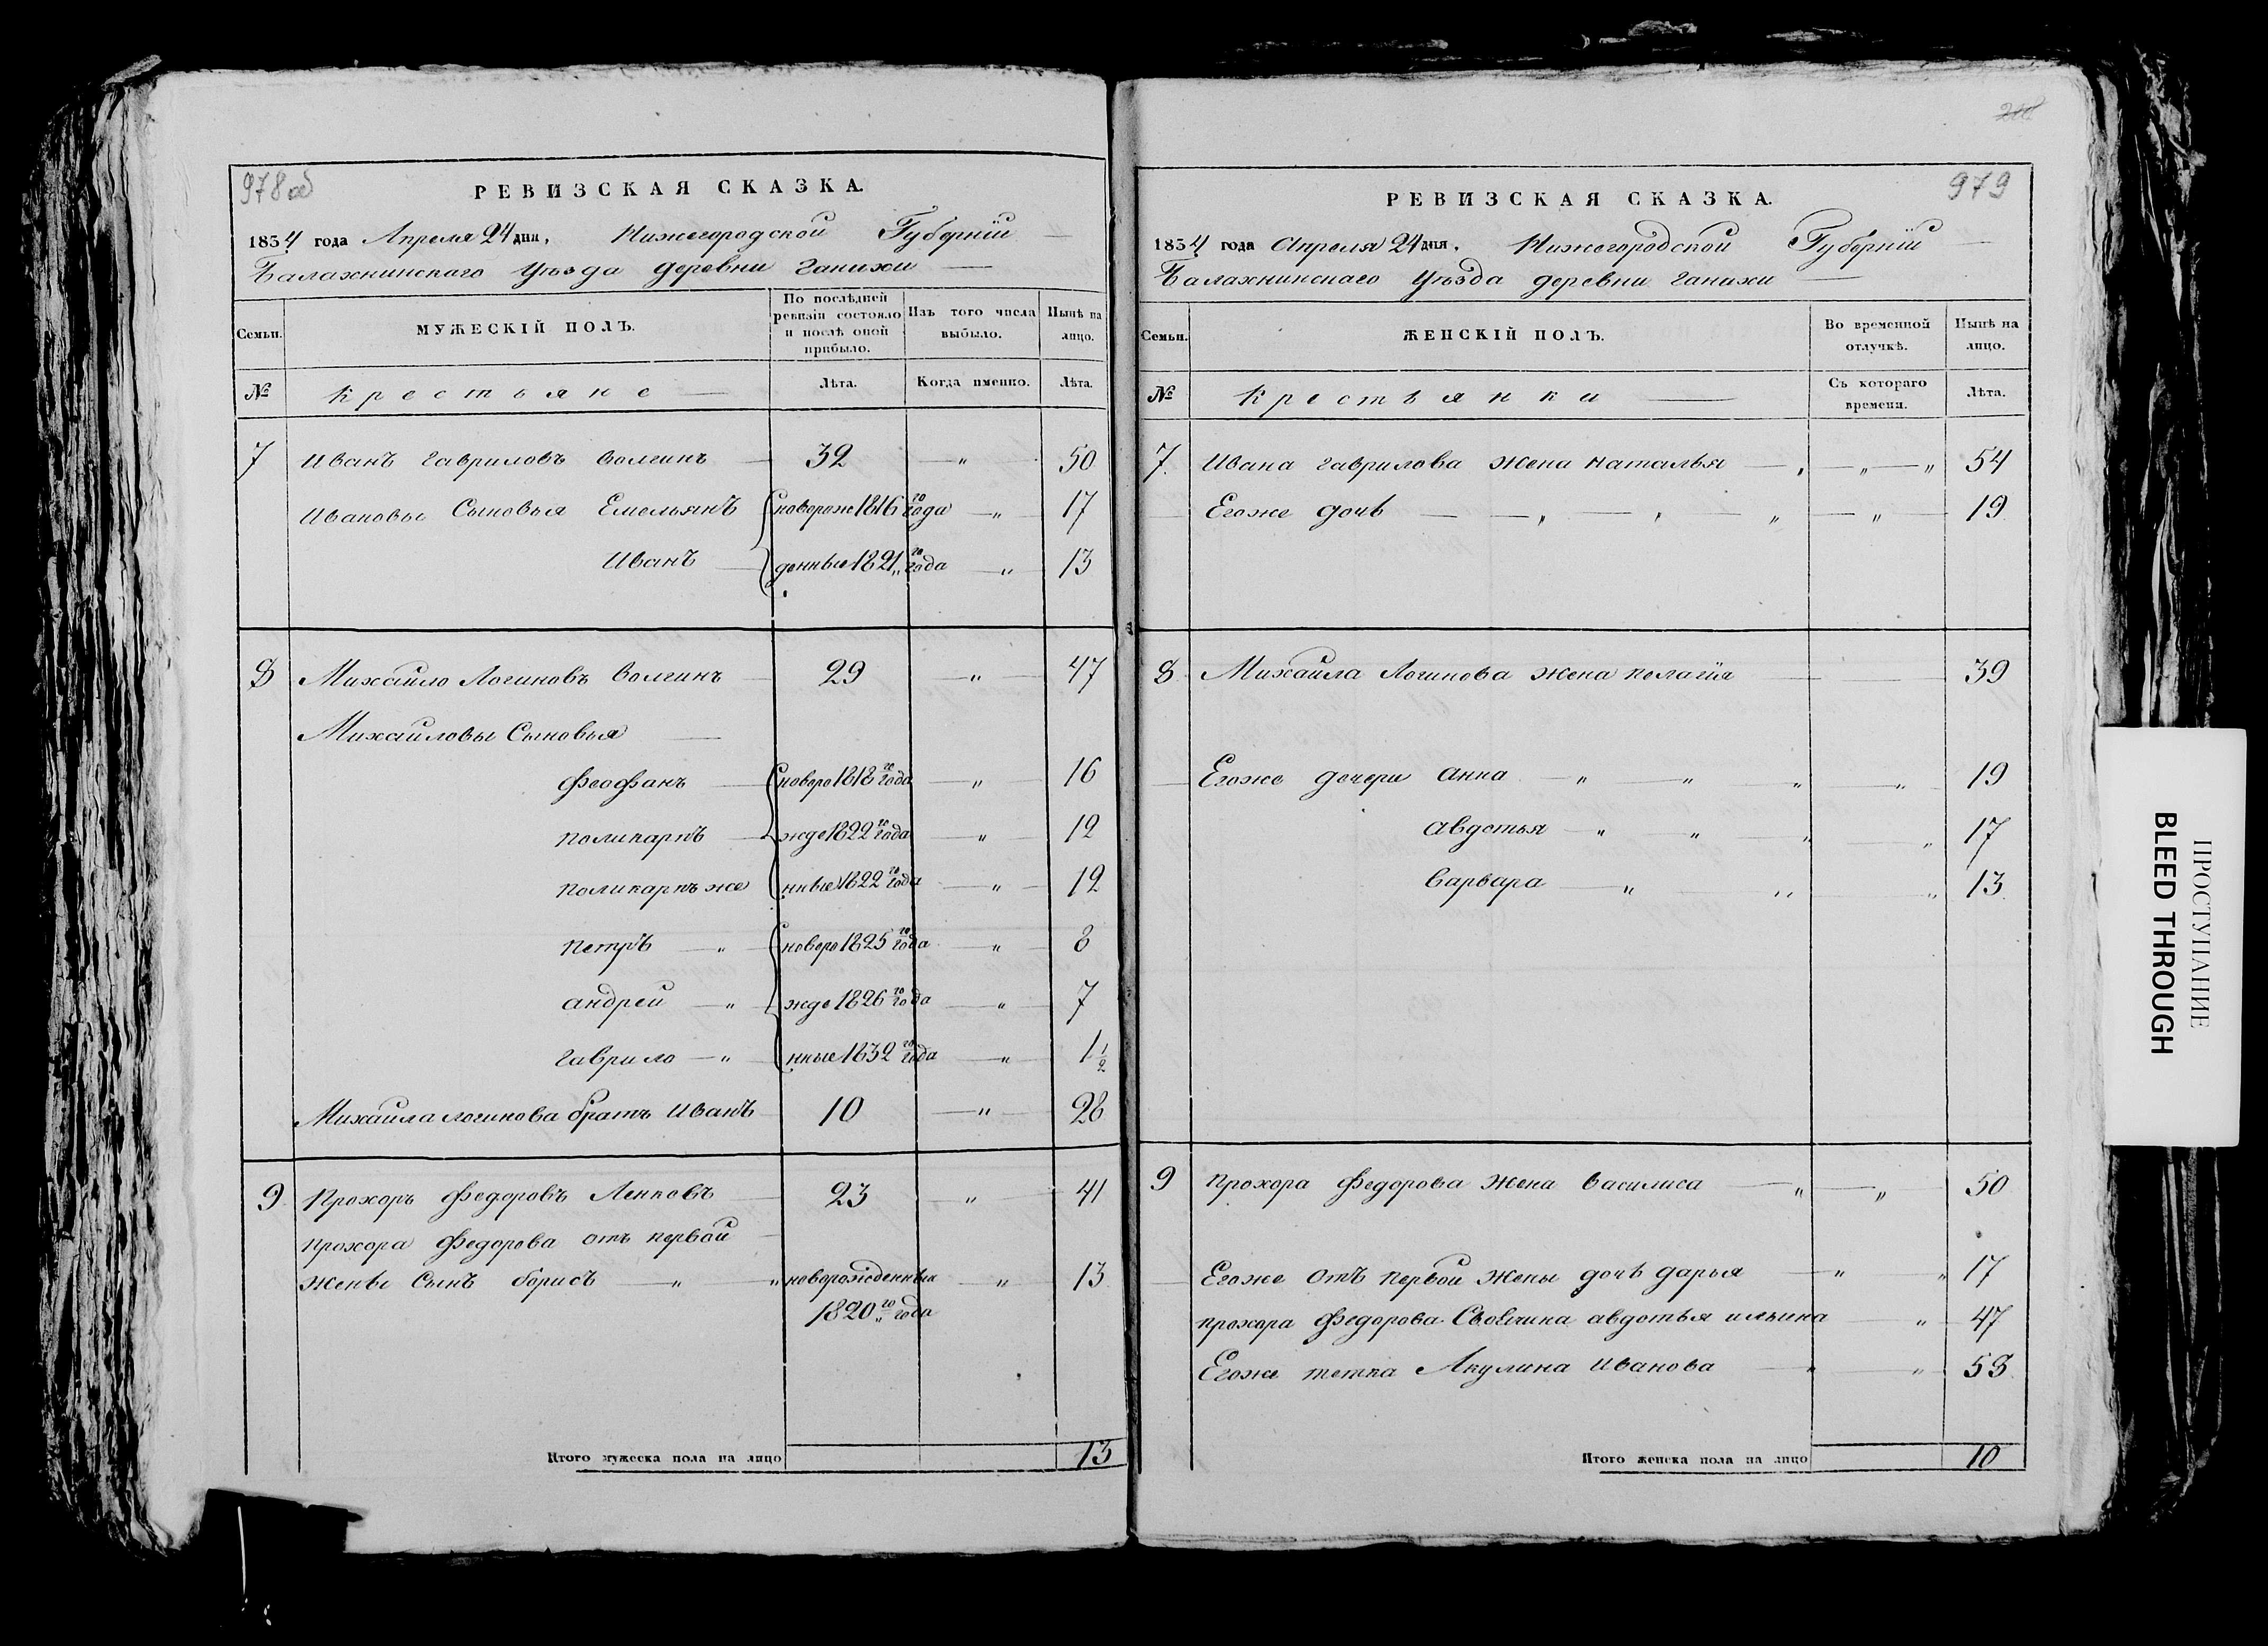 978 об
РЕВИЗСКАЯ СКАЗКА.
1834 года Апреля 24 дня, Нижегородской Губернiи
Балахнинскаго Уѣзда деревни Ганихи
Семьи.
МУЖЕСКIЙ ПОЛЪ.
По послѣдней ревизiи состояло и послѣ оной прибыло.
Изъ того числа выбыло.
Нынѣ на лицо.
№ Крестьяне Лѣта. Когда именно. Лѣта.
7 Иванъ Гавриловъ Волгинъ 32 " 50
Ивановы Сыновья Емельянъ новорож 1816го года " 17
Иванъ денные 1821го года " 13
8 Михайло Логиновъ Волгинъ 29 " 47
Михайловы Сыновья
Феофанъ новоро 1818го года " 16
Поликарпъ жде 1822го года " 12
Поликарпъ же нные 1822го года " 12
Петръ " новоро 1825го года " 8
Андрей " жде 1826го года " 7
Гаврило " нные 1832го года " 1 1/2
Михайла Логинова братъ Иванъ 10 " 28
9 Прохоръ Федоровъ Ленковъ 23 " 41
Прохора Федорова отъ первой
жены Сынъ Борисъ " " новорожденныи " 13
1820го года
Итого мужеска пола на лицо 13
979
РЕВИЗСКАЯ СКАЗКА.
1834 года Апреля 24 дня. Нижегородской Губернiи
Балахнинскаго Уѣзда деревни Ганихи
Семьи.
ЖЕНСКIЙ ПОЛЪ.
Во временной отлучкѣ.
Нынѣ на лицо.
№ Крестьянки Съ котораго времени. Лѣта.
7. Ивана Гаврилова жена Наталья " " 54
Егоже дочь " " " " 19
8 Михайла Логинова жена Пелагiя 39
Егоже дочери Анна " " " " 19
Авдотья " " " " 17
Варвара " " " 13
9 Прохора Федорова жена Василиса " " 50
Егоже отъ первой жены дочь Дарья " " 17
Прохора Федорова Авдотья Ильина " 47
Егоже тетка Акулина Иванова " " 58
Итого женска пола на лицо 10
ПРОСТУПАНИЕ
BLEED THROUGH